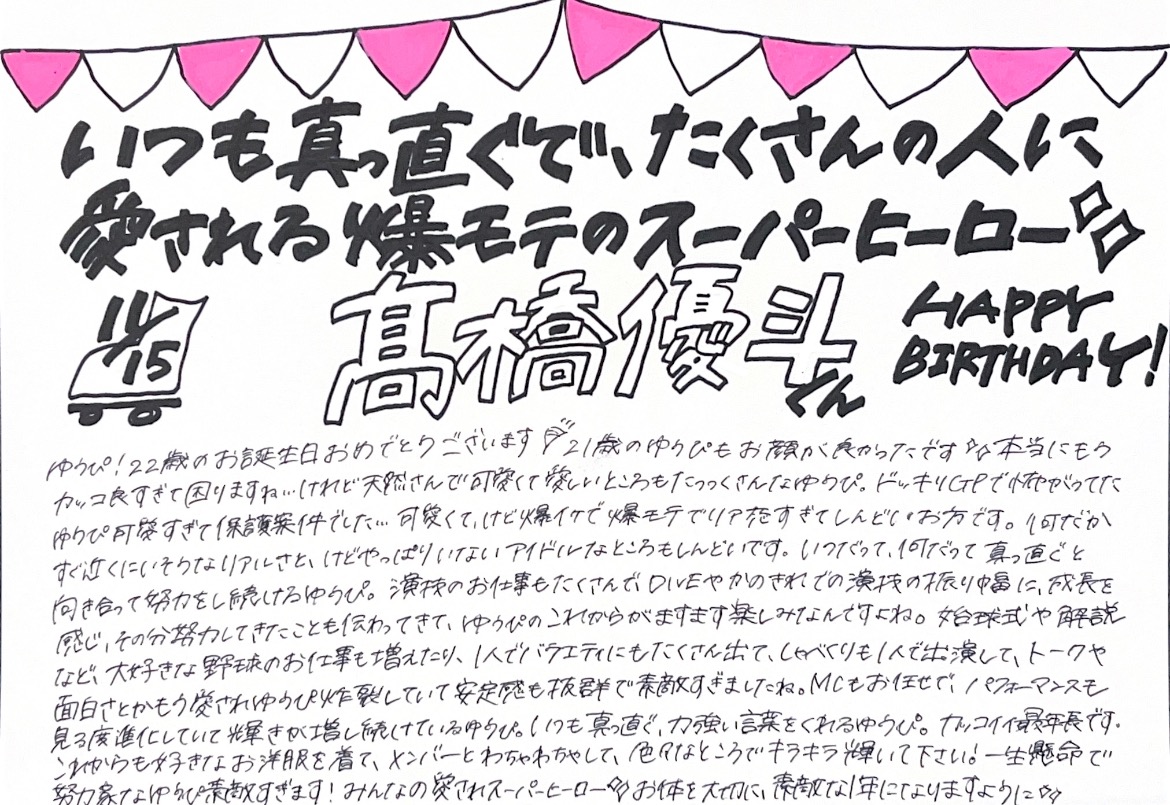 いつも真っ直ぐで、たくさんの人に
愛される爆モテのスーパーヒーロー
11/15
髙橋優斗くん
HAPPY
BIRTHDAY!
ゆうぴ！22歳のお誕生日おめでとうございます 21歳のゆうぴもお顔が良かったです 本当にもう
カッコ良すぎて困りますね…けれど天然さんで可愛くて愛しいところもたっっくさんなゆうぴ。ドッキリGPで怖がってた
ゆうぴ可愛すぎて保護案件でした…可愛くて、けど爆イケで爆モテでリア恋すぎてしんどいお方です。何だか
すぐ近くにいそうなリアルさと、けどやっぱりいないアイドルなところもしんどいです。いつだって、何だって真っ直ぐと
向き合って努力をし続けるゆうぴ。演技のお仕事もたくさんで、DIVEやかのきれでの演技の振り幅に、成長を
感じ、その分努力してきたことも伝わってきて、ゆうぴのこれからがますます楽しみなんですよね。始球式や解説
など、大好きな野球のお仕事も増えたり、1人でバラエティにもたくさん出て、しゃべくりも1人で出演して、トークや
面白さとかもう愛されゆうぴ炸裂していて安定感も抜群で素敵すぎましたね。MCもお任せで、パフォーマンスも
見る度進化していて輝きが増し続けているゆうぴ。いつも真っ直ぐ、力強い言葉をくれるゆうぴ。カッコイイ最年長です。
これからも好きなお洋服を着て、メンバーとわちゃわちゃして、色々なところでキラキラ輝いて下さい！一生懸命で
努力家なゆうぴ素敵すぎます！みんなの愛されスーパーヒーロー お体を大切に、素敵な1年になりますように